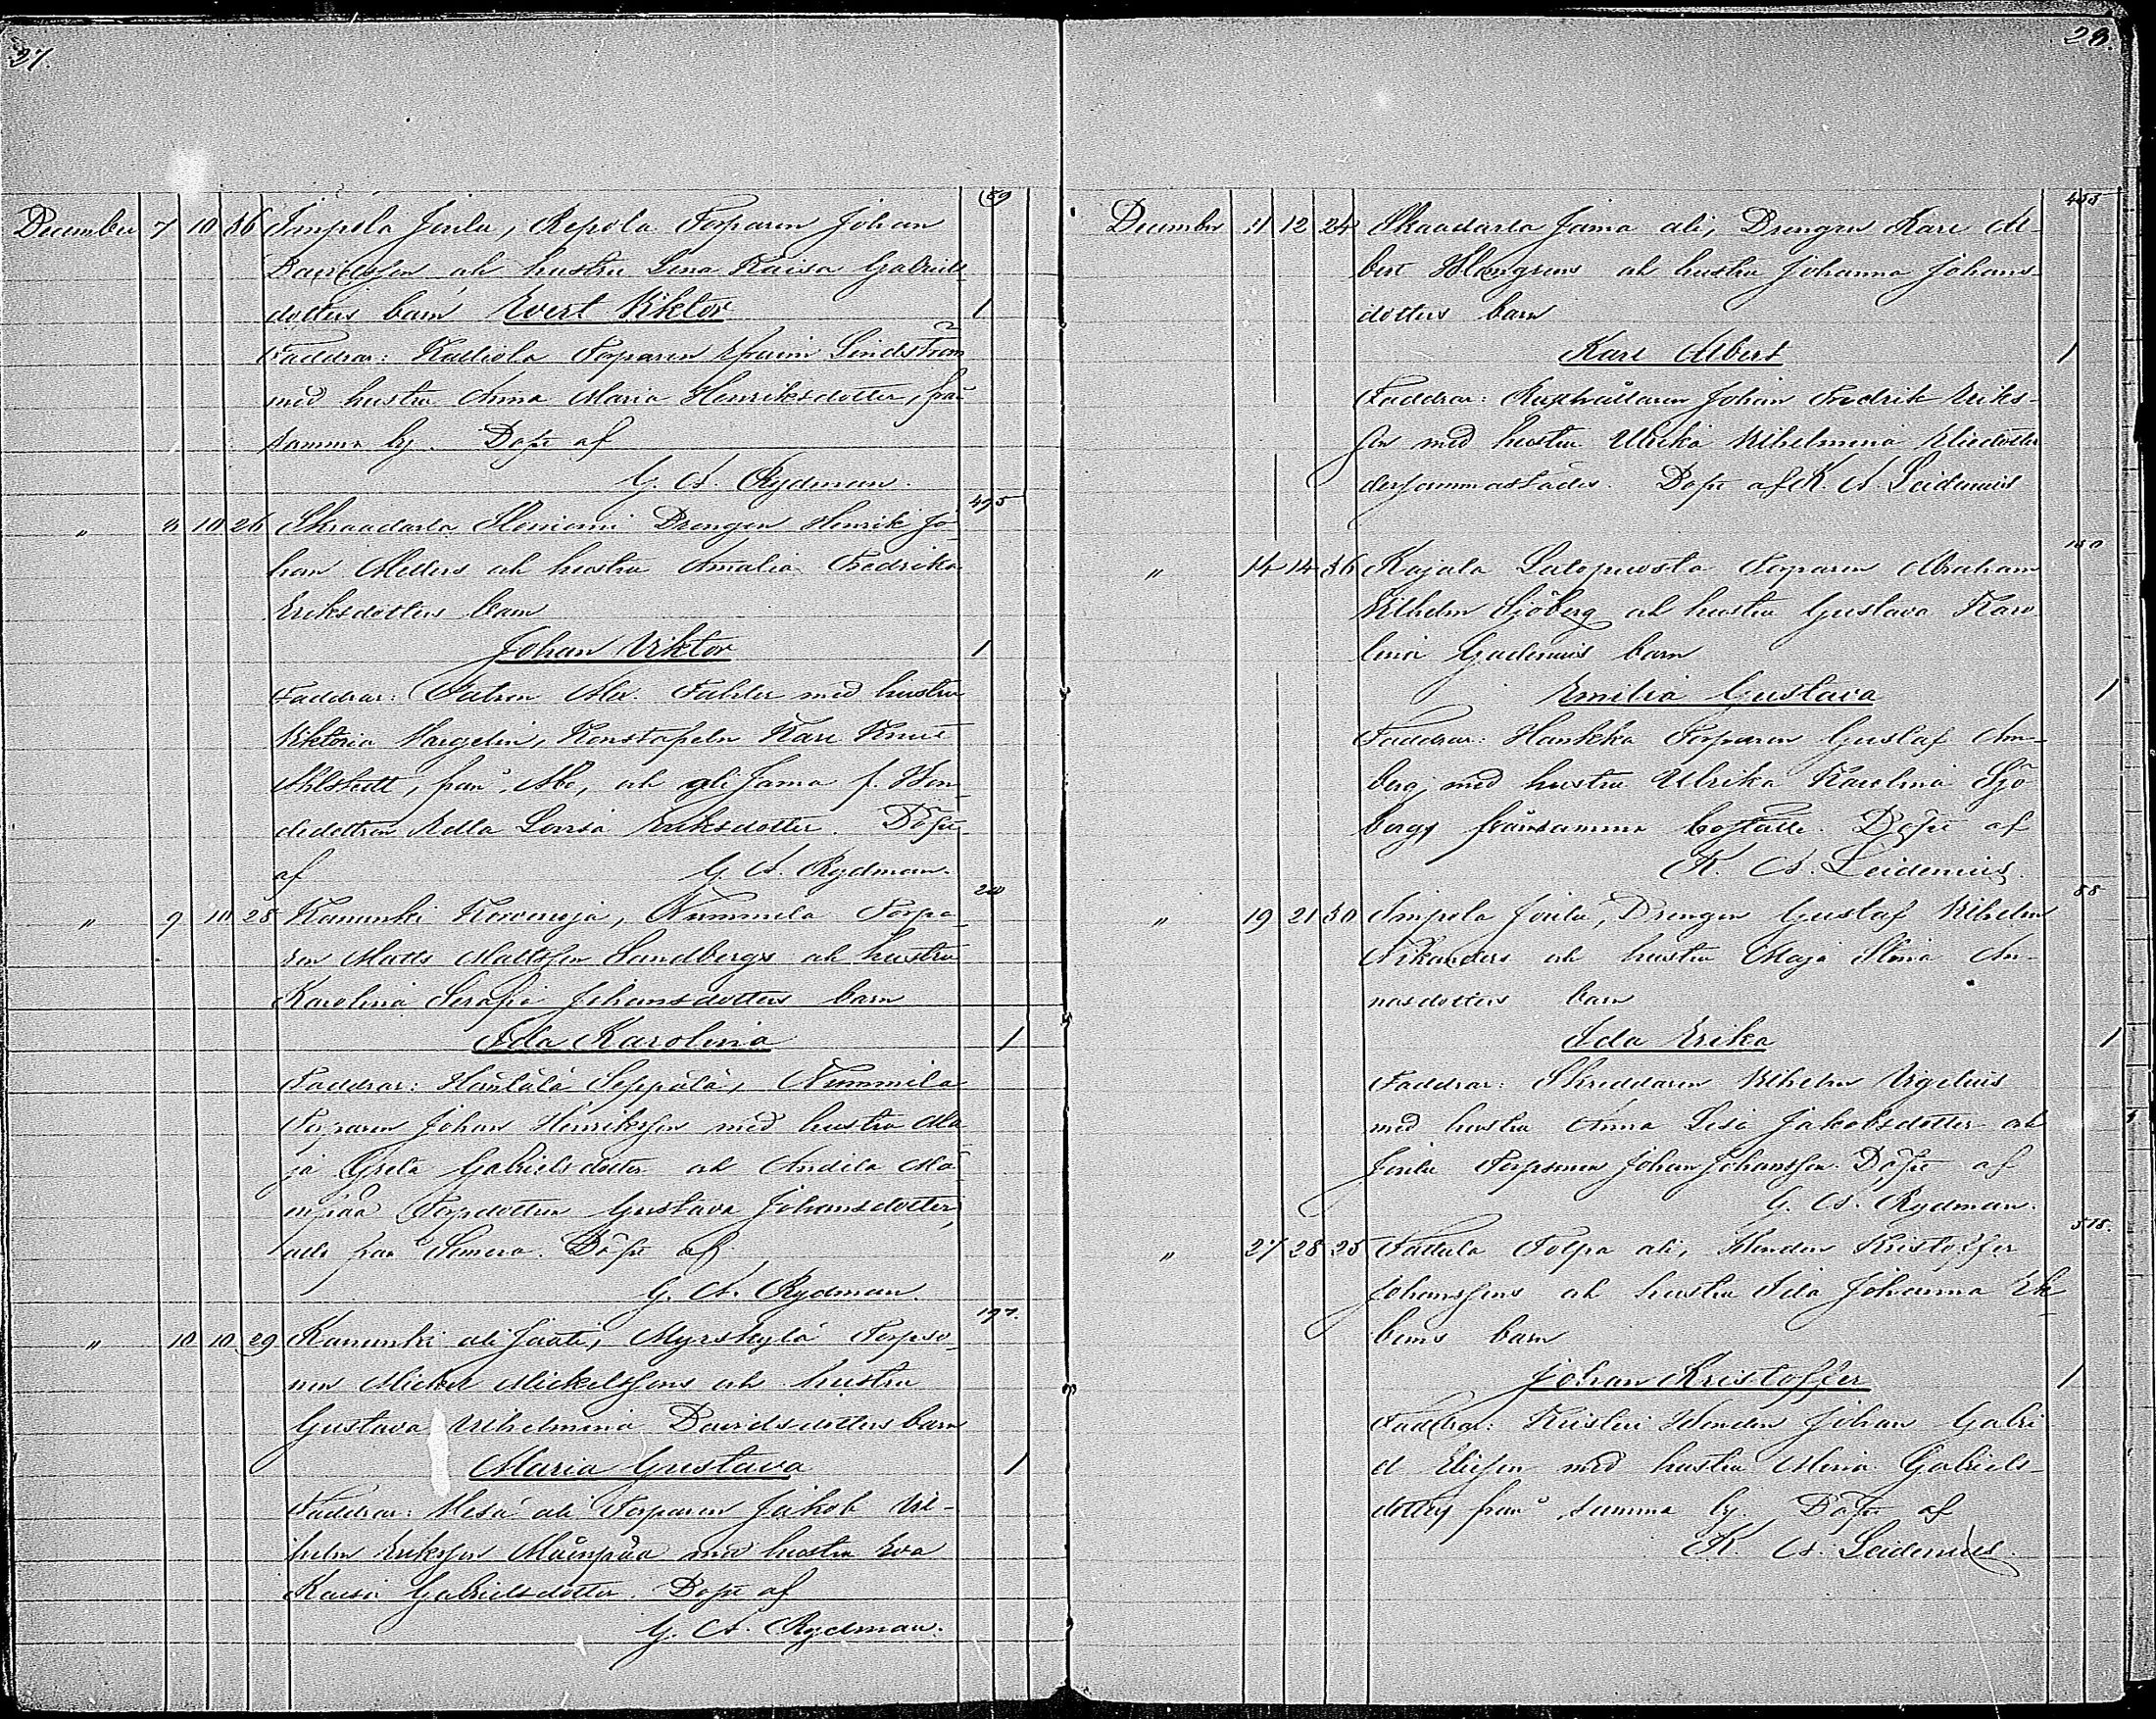 27.
159
December 7 10 36 Impola Jvila, Repola Torparen Johan
Davidsson och hustru Lena Kaisa Gabriels
dotters barn Evert Viktor 1
Faddrar: Torparen Efraim Lindström
med hustru Anna Maria Henriksdotter, från
samma by. Döpt af
G. A. Rydman.
495
" 8 10 26 Skraadarla Drengen Henrik Jo-
han Mellers och hustru Amalia Fredrika
Eriksdotters barn
Johan Viktor 1
Faddrar: Patron Alex. med hustru
Viktoria Konstapeln Karl Knut
Ahlstedt, från Åbo, och ali Jama f. Bon-
dedottren Edla Lovisa Eriksdotter. Döpt
af G. A. Rydman.
200
" 9 10 28 Kanunki Korvenoja, Nummila Torpa-
ren Matts Mattsson Sandbergs och hustru
Karolina Serafia Johansdotters barn
Ida Karolina 1
Faddrar: Häntälä Seppälä, Nummila
Torparen Johan Henriksson med hustru Ma-
ja Greta Gabrielsdotter och Andila Mä-
enpää Torpdottren Gustava Johansdotter,
alla från Somero. Döpt af
G. A. Rydman.
197.
" 10 10 29 Kanunki ali Jaati, Myrskylä Torpso-
nen Mickel Mickelssons och hustru
Gustava Vilhelmina Davidsdotters barn
Maria Gustava 1
Faddrar: ali Torparen Jakob Vil-
helm Eriksson Mäenpää med hustru Eva
Kaisa Gabrielsdotter. Döpt af
G. A. Rydman.
28.
455
December 11 12 24 Skaadarla Jama ali, Drengen Karl Al-
bert Holmgrens och hustru Johanna Johans-
dotters barn
Karl Albert 1
Faddrar: Rusthållaren Johan Fredrik Eriks-
son med hustru Ulrika Vilhelmina Eliedotter
dersammastädes. Döpt af K. A. Leidenius
150
" 14 14 36 Kojola Torparen Abraham
Vilhelm Sjöberg och hustru Gustava Karo-
lina Gadenius barn
Emilia Gustava 1
Faddrar: Hankka Torparen Gustaf Am-
berg, med hustru Ulrika Karolina Sjö-
berg, från samma boställe. Döpt af
K. A. Leidenius.
88
" 19 21 30 Impola Jvila, Drengen Gustaf Vilhelm
Nikanders och hustru Maja Stina An-
nasdotters barn
Ida Erika 1
Faddrar: Skreddaren Vilhelm Vigelius
med hustru Anna Lisa Jakobsdotter och
Jvila Torpsonen Johan Johansson. Döpt af
G. A. Rydman.
518.
" 27 28 25 Talpa ali, Bonden Kristoffer
Johanssons och hustru Ida Johanna Ek-
boms barn
Johan Kristoffer 1
Faddrar: Bonden Johan Gabri-
el Eliesson med hustru Maria Gabriels-
dotter, från samma by. Döpt af
K. A. Leidenius.